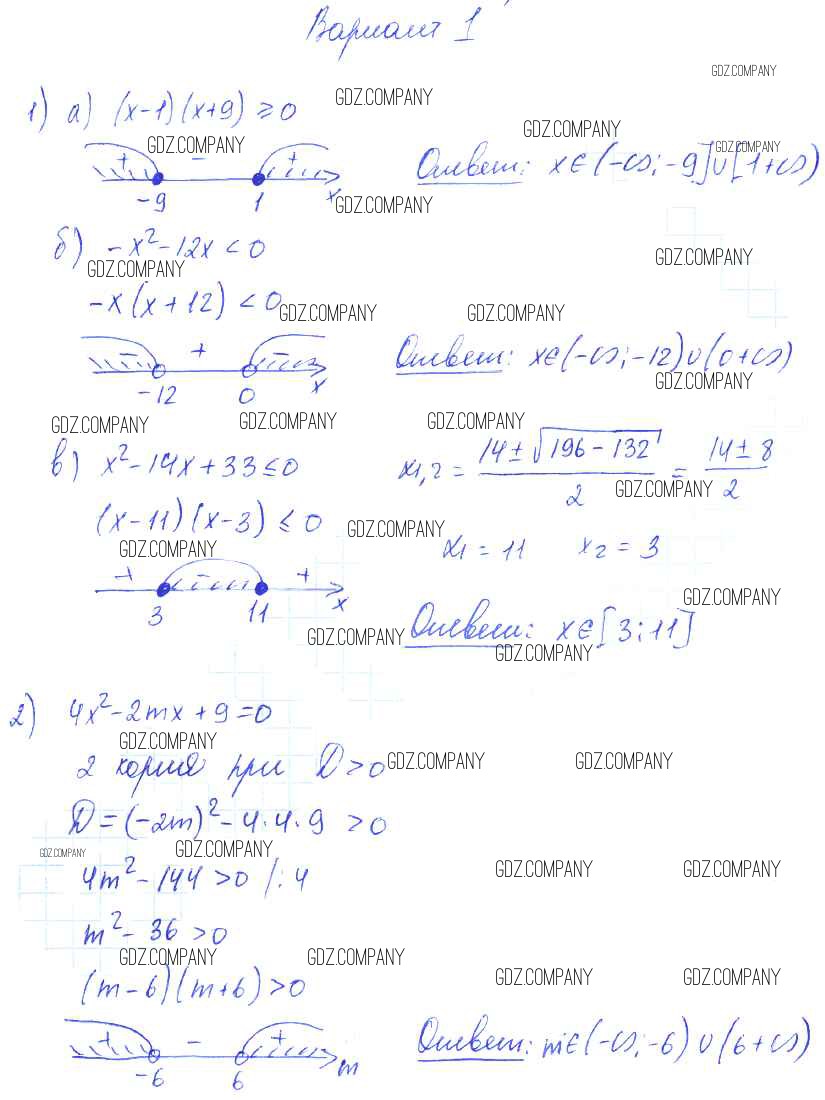 Вариант 1
GDZ.COMPANY
1) а) (x-1)(x+9) ≥ 0 GDZ.COMPANY
GDZ.COMPANY GDZ.COMPANY GDZ.COMPANY
+ - + Ответ: x∈(-∞;-9]∪[1+∞)
-9 1 x GDZ.COMPANY
б) -x²-12x < 0 GDZ.COMPANY
GDZ.COMPANY
-x(x+12) < 0 GDZ.COMPANY GDZ.COMPANY
- + - Ответ: x∈(-∞;-12)∪(0+∞)
-12 0 x GDZ.COMPANY
GDZ.COMPANY GDZ.COMPANY GDZ.COMPANY
в) x²-14x+33 ≤ 0 x1,2 = (14±√(196-132))/2 = (14±8)/2
GDZ.COMPANY
(x-11)(x-3) ≤ 0 GDZ.COMPANY
GDZ.COMPANY x1 = 11 x2 = 3
+ - +
3 11 x GDZ.COMPANY
GDZ.COMPANY Ответ: x∈[3;11]
GDZ.COMPANY
2) 4x²-2mx+9=0
GDZ.COMPANY
2 корня при D>0 GDZ.COMPANY GDZ.COMPANY
D=(-2m)²-4·4·9 >0
GDZ.COMPANY GDZ.COMPANY
4m²-144>0 /:4 GDZ.COMPANY GDZ.COMPANY
m²-36>0
GDZ.COMPANY GDZ.COMPANY
(m-6)(m+6)>0 GDZ.COMPANY GDZ.COMPANY
+ - + Ответ: m∈(-∞;-6)∪(6+∞)
-6 6 m